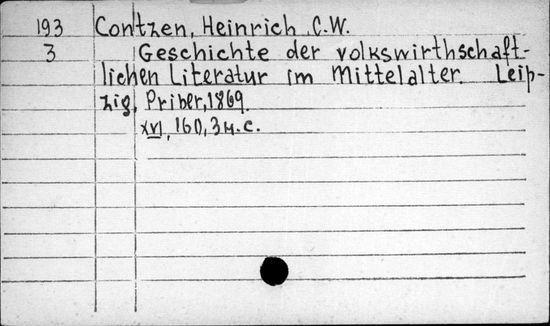 193 Contzen, Heinrich C.W.
3 Geschichte der volkswirthschaft-
lichen Literatur im Mittelalter. Leip-
zig, Priber, 1869.
xvi, 160, 3 u. c.